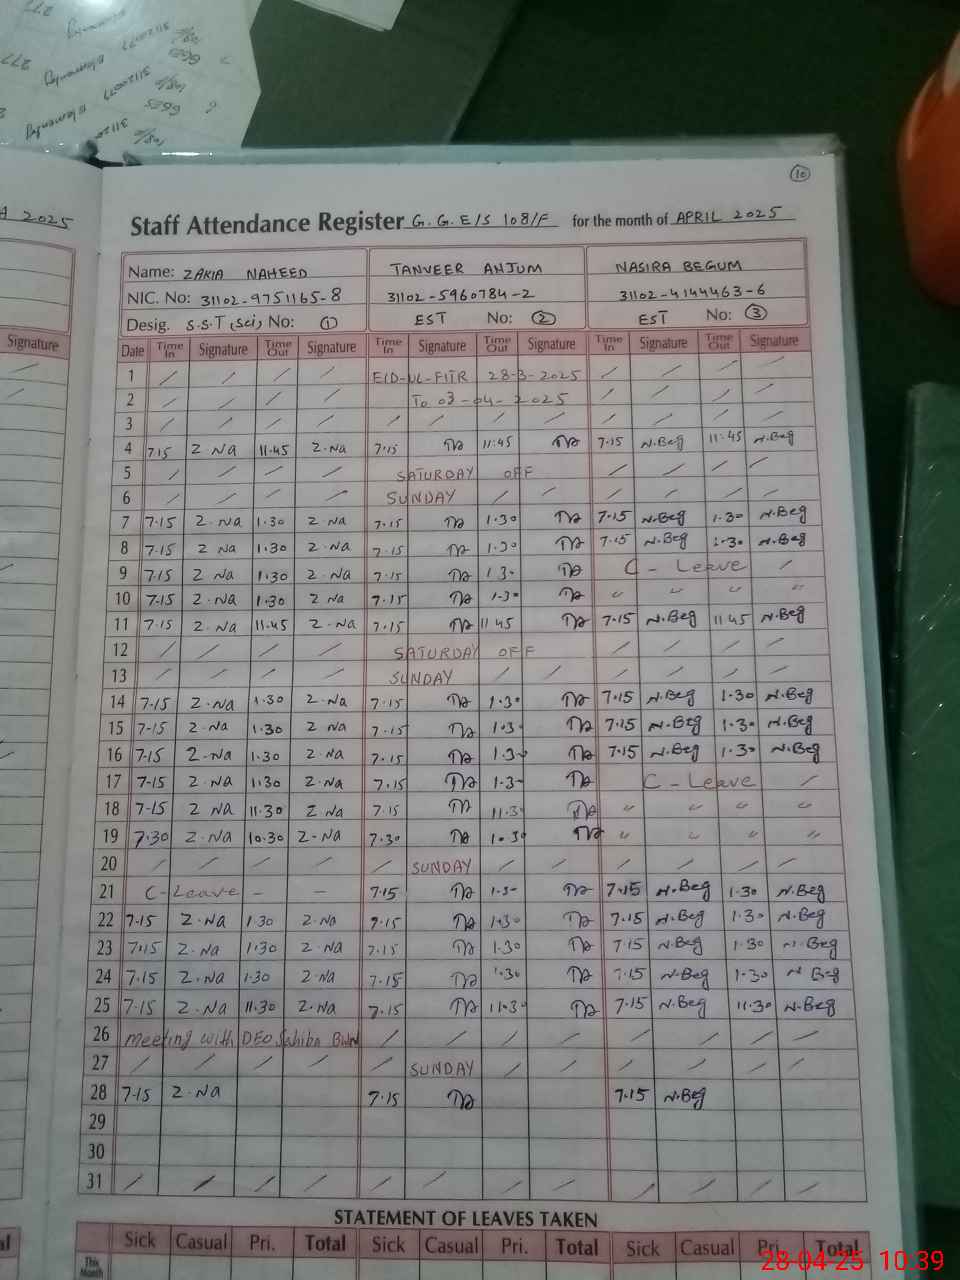 A 2025
Signature
10
Staff Attendance Register G.G.E/S 108/F for the month of APRIL 2025
Name: ZAKIA NAHEED TANVEER ANJUM NASIRA BEGUM
NIC. No: 31102-9751165-8 31102-5960784-2 31102-4144463-6
Desig. S.S.T (Sci) No: 1 EST No: 2 EST No: 3
Date Time In Signature Time Out Signature Time In Signature Time Out Signature Time In Signature Time Out Signature
1 / / / / EID-UL-FITR 28-3-2025 / / / /
2 / / / / To 03-04-2025 / / / /
3 / / / / / / / / / / / /
4 7.15 Z Na 11.45 Z.Na 7.15 TA 11:45 TA 7.15 N.Beg 11.45 N.Beg
5 / / / / SATURDAY OFF / / / /
6 / / / / SUNDAY / / / / / /
7 7.15 Z.Na 1.30 Z.Na 7.15 TA 1.30 TA 7.15 N.Beg 1.30 N.Beg
8 7.15 Z Na 1.30 Z.Na 7.15 TA 1.30 TA 7.15 N.Beg 1.30 N.Beg
9 7.15 Z Na 1.30 Z.Na 7.15 TA 1.30 TA C - Leave /
10 7.15 Z.Na 1.30 Z Na 7.15 TA 1.30 TA " " " "
11 7.15 Z.Na 11.45 Z.Na 7.15 TA 11 45 TA 7.15 N.Beg 11 45 N.Beg
12 / / / / SATURDAY OFF / / / /
13 / / / / SUNDAY / / / / / /
14 7.15 Z.Na 1.30 Z.Na 7.15 TA 1.30 TA 7.15 N.Beg 1.30 N.Beg
15 7-15 Z.Na 1.30 Z Na 7.15 TA 1.30 TA 7.15 N.Beg 1.30 N.Beg
16 7-15 Z-Na 1.30 Z.Na 7.15 TA 1.30 TA 7.15 N.Beg 1.30 N.Beg
17 7-15 Z.Na 1.30 Z.Na 7.15 TA 1.30 TA C - Leave /
18 7-15 Z Na 11.30 Z Na 7.15 TA 11.30 TA " " " "
19 7.30 Z.Na 10.30 Z-Na 7.30 TA 10.30 TA " " " "
20 / / / / / SUNDAY / / / / / /
21 C-Leave - - 7.15 TA 1.30 TA 7.15 N.Beg 1.30 N.Beg
22 7.15 Z.Na 1.30 Z.Na 7.15 TA 1.30 TA 7.15 N.Beg 1.30 N.Beg
23 7.15 Z.Na 1.30 Z.Na 7.15 TA 1.30 TA 7.15 N.Beg 1.30 N.Beg
24 7.15 Z.Na 1.30 Z.Na 7.15 TA 1.30 TA 7.15 N.Beg 1.30 N Beg
25 7.15 Z.Na 11.30 Z.Na 7.15 TA 11.30 TA 7.15 N.Beg 11.30 N.Beg
26 meeting with DEO Sahiba BWN / / / / / / / /
27 / / / / / SUNDAY / / / / / /
28 7-15 Z.Na 7.15 TA 7.15 N.Beg
29
30
31 / / / / / / / / / / / /
STATEMENT OF LEAVES TAKEN
Sick Casual Pri. Total Sick Casual Pri. Total Sick Casual Pri. Total
This Month
28-04-25 10:39